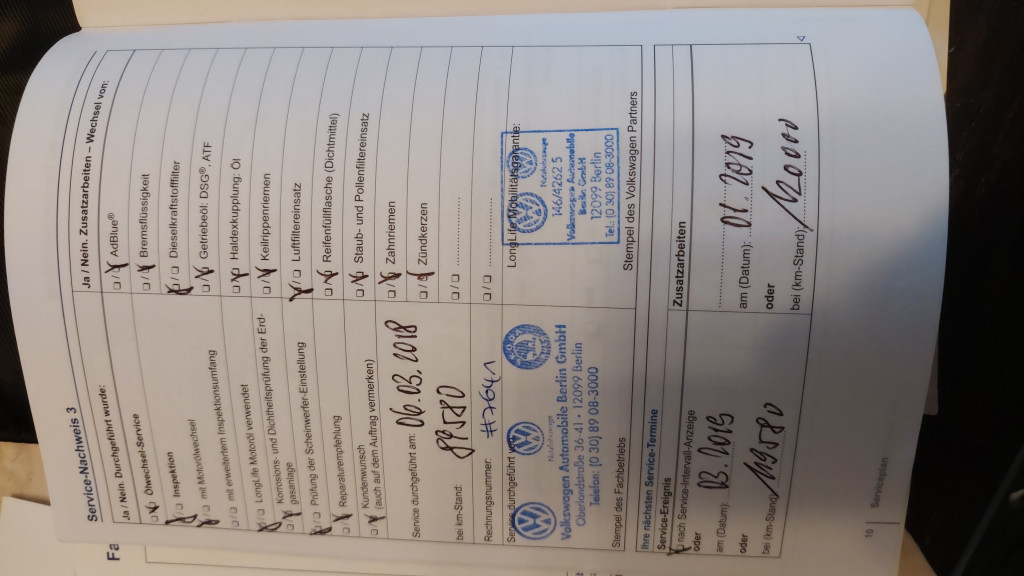 Fa
Service-Nachweis 3
Ja / Nein. Durchgeführt wurde:
Ölwechsel-Service
Inspektion
mit Motorölwechsel
mit erweitertem Inspektionsumfang
LongLife Motoröl verwendet
Korrosions- und Dichtheitsprüfung der Erd-
gasanlage
Prüfung der Scheinwerfer-Einstellung
Reparaturempfehlung
Kundenwunsch
(auch auf dem Auftrag vermerken)
Service durchgeführt am: 06.03.2018
bei km-Stand: 89580
Rechnungsnummer: #7641
Service durchgeführt
Nutzfahrzeuge
Volkswagen Automobile Berlin GmbH
Oberlandstraße 36-41 · 12099 Berlin
Telefon: (0 30) 89 08-3000
Stempel des Fachbetriebs
Ja / Nein. Zusatzarbeiten – Wechsel von:
AdBlue®
Bremsflüssigkeit
Dieselkraftstofffilter
Getriebeöl: DSG®, ATF
Haldexkupplung: Öl
Keilrippenriemen
Luftfiltereinsatz
Reifenfüllflasche (Dichtmittel)
Staub- und Pollenfiltereinsatz
Zahnriemen
Zündkerzen
LongLife Mobilitätsgarantie:
Nutzfahrzeuge
146/4262 5
Volkswagen Automobile
Berlin GmbH
12099 Berlin
Tel.: (0 30) 89 08-3000
Stempel des Volkswagen Partners
Ihre nächsten Service-Termine
Service-Ereignis
nach Service-Intervall-Anzeige
oder
am (Datum): 03.2019
oder
bei (km-Stand) 119580
Zusatzarbeiten
am (Datum): 01.2019
oder
bei (km-Stand): 120000
10 | Serviceplan